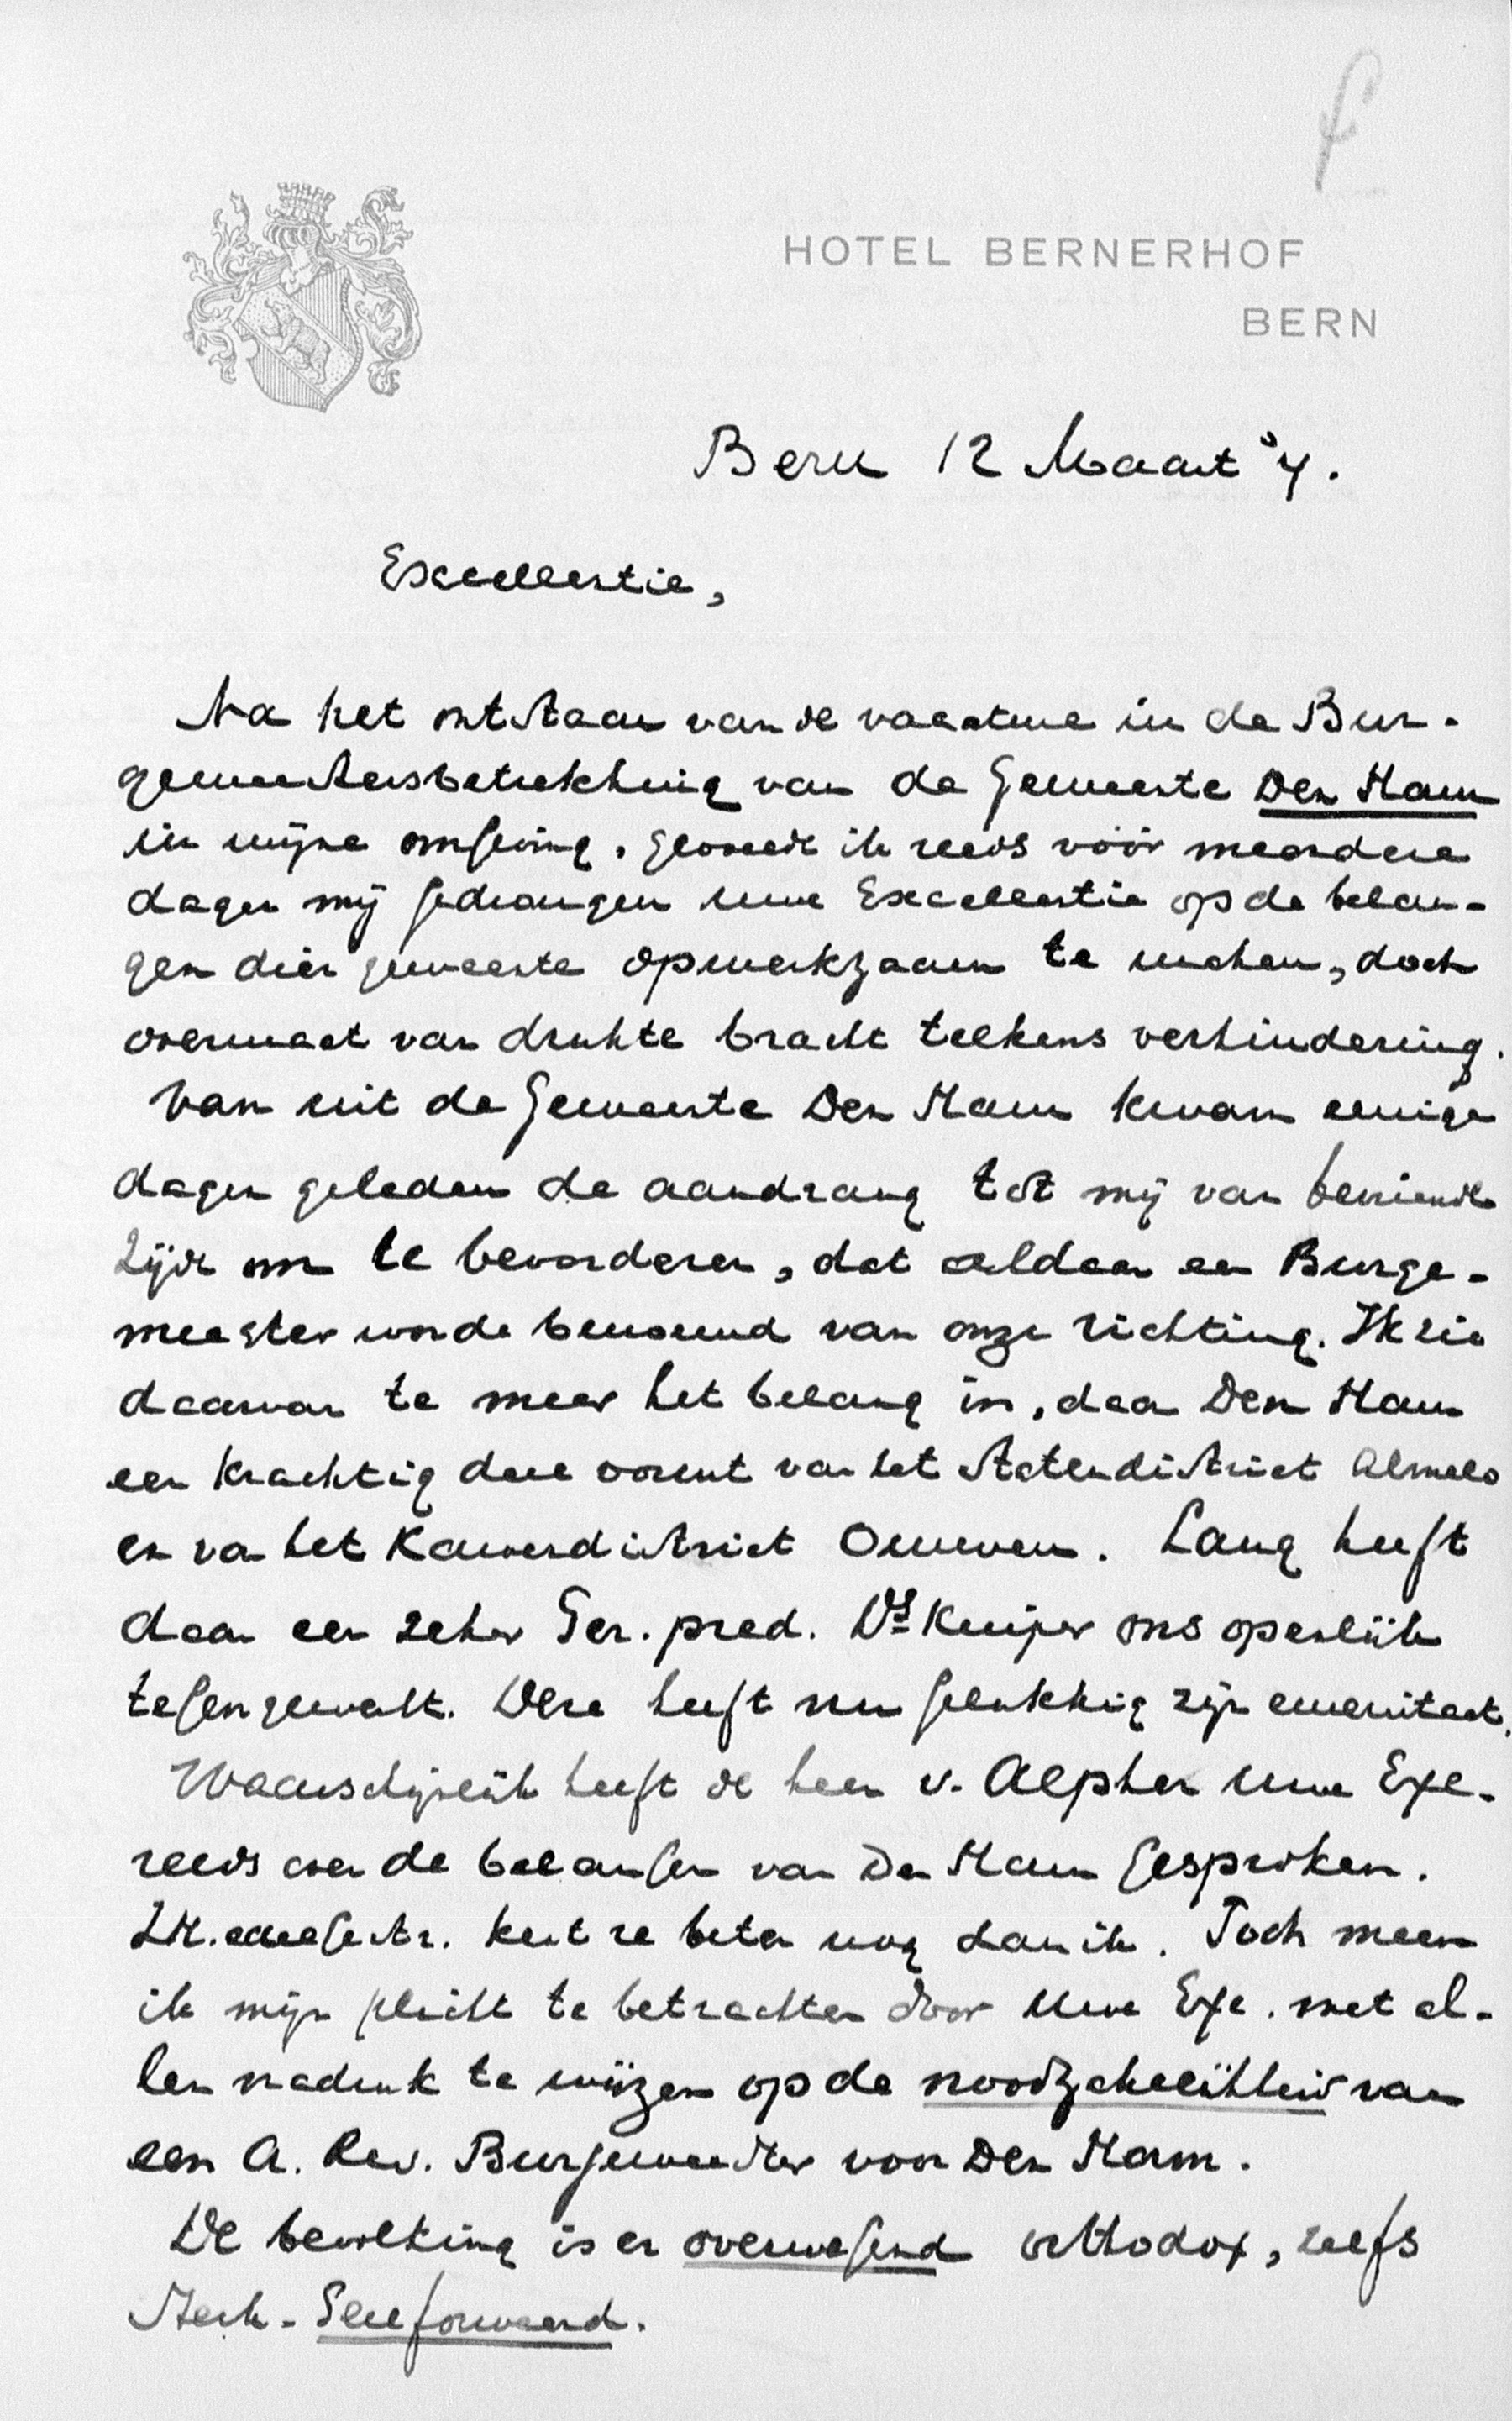 HOTEL BERNERHOF
BERN
Bern 12 Maart '4.
Excellentie,
Na het ontstaan van de vacature in de Bur-
gemeestersbetrekking van de Gemeente Den Ham
in mijne omgeving, gevoelde ik reeds vóór meerdere
dagen mij gedrongen Uwe Excellentie op de belan-
gen dier gemeente opmerkzaam te maken, doch
overmaat van drukte bracht telkens verhindering.
Van uit de Gemeente Den Ham kwam eenige
dagen geleden de aandrang tot mij van bevriende
zijde om te bevorderen, dat aldaar een Burge-
meester worde benoemd van onze richting. Ik zie
daarvan te meer het belang in, daar Den Ham
een krachtig deel vormt van het Statendistrict Almelo
en van het Kamerdistrict Ommen. Lang heeft
daar een zeker Ger. pred. Ds Kuijper ons openlijk
tegengewerkt. Deze heeft nu gelukkig zijn emeritaat.
Waarschijnlijk heeft de heer v. Alphen Uwe Exc.
reeds over de belangen van Den Ham gesproken.
ZH.EdelGestr. kent ze beter nog dan ik. Toch meen
ik mijn plicht te betrachten door Uwe Exc. met al-
len nadruk te wijzen op de noodzakelijkheid van
een A. Rev. Burgemeester voor Den Ham.
De bevolking is er overwegend orthodox, zelfs
sterk-Gereformeerd.